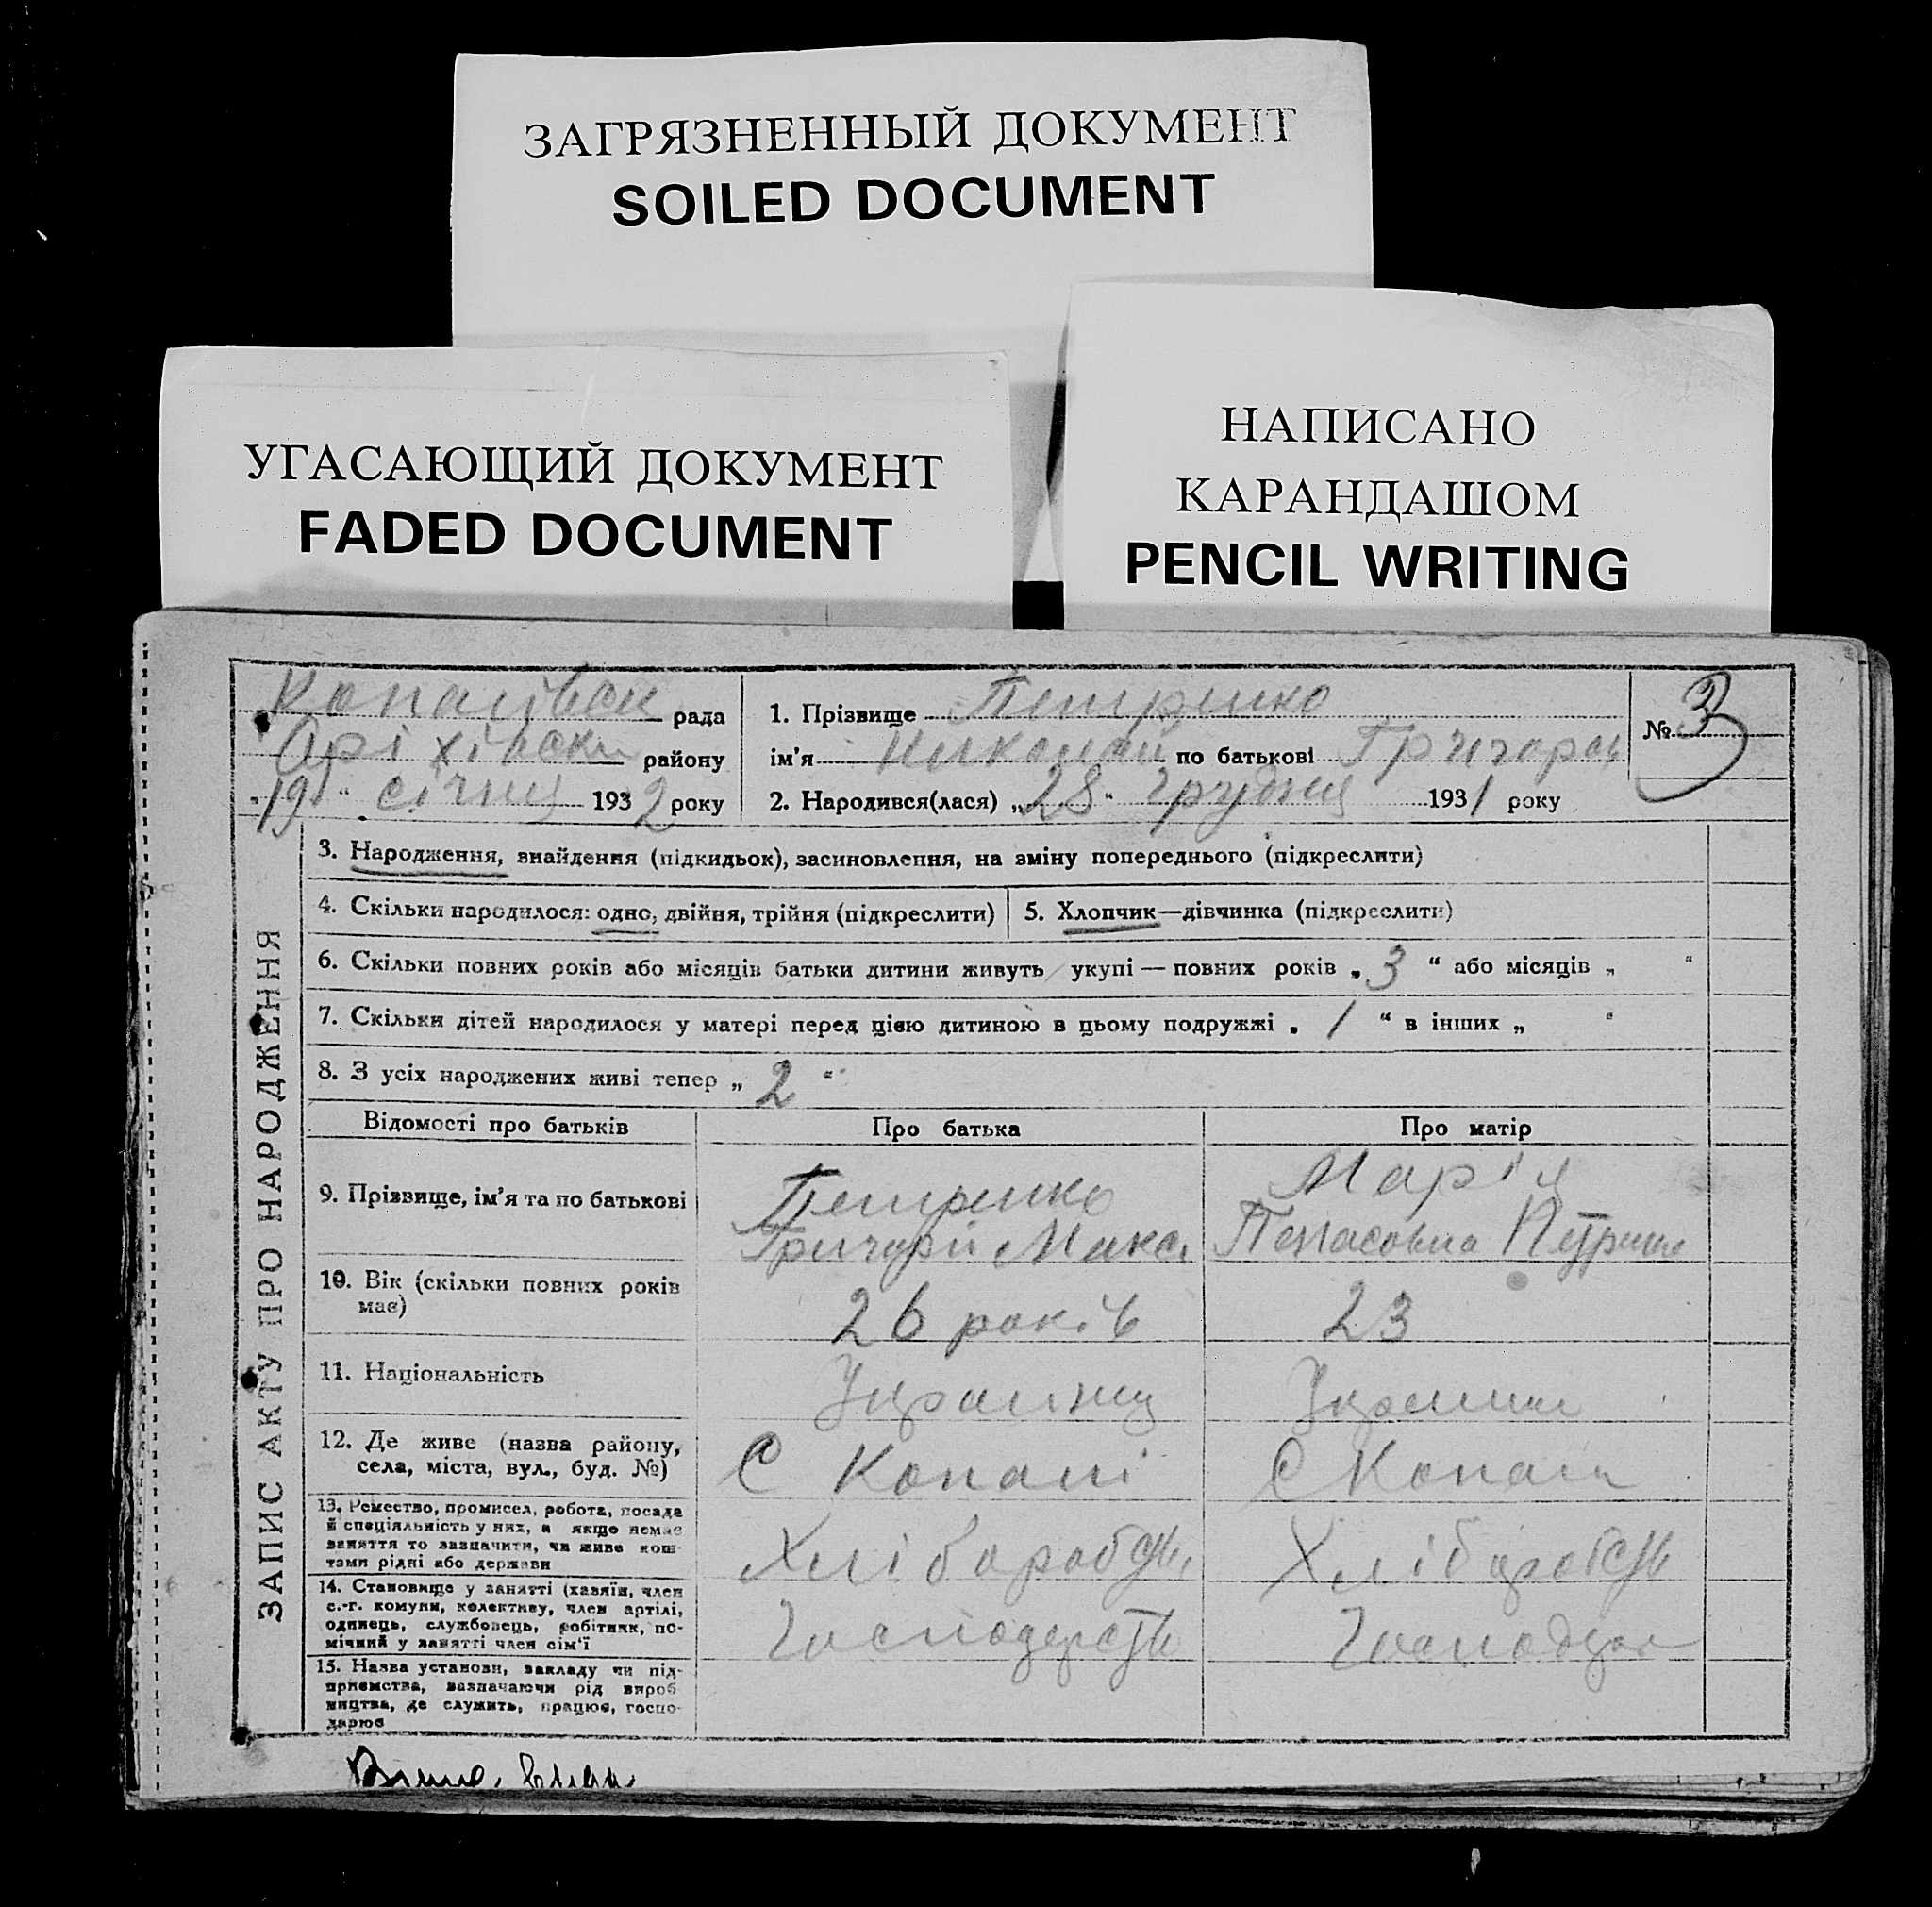 ЗАГРЯЗНЕННЫЙ ДОКУМЕНТ
SOILED DOCUMENT
УГАСАЮЩИЙ ДОКУМЕНТ
FADED DOCUMENT
НАПИСАНО
КАРАНДАШОМ
PENCIL WRITING
Копанівськ рада
Оріхівськ району
"19" січня 1932 року
1. Прізвище Петренко
ім'я Николай по батькові Григоров
2. Народився(лася) „28" грудня 1931 року
№ 3
ЗАПИС АКТУ ПРО НАРОДЖЕННЯ
3. Народження, знайдення (підкидьок), засиновлення, на зміну попереднього (підкреслити)
4. Скільки народилося: одно, двійня, трійня (підкреслити)
5. Хлопчик—дівчинка (підкреслити)
6. Скільки повних років або місяців батьки дитини живуть укупі — повних років „ 3 " або місяців „ "
7. Скільки дітей народилося у матері перед цією дитиною в цьому подружжі „ 1 " в інших „ "
8. З усіх народжених живі тепер „ 2 "
Відомості про батьків Про батька Про матір
9. Прізвище, ім'я та по батькові
Петренко
Григорій Макс
Марія
Петренко
10. Вік (скільки повних років має)
26 років
23
11. Національність
Українец
Українка
12. Де живе (назва району,
села, міста, вул., буд. №)
С Копані
С Копані
13. Ремество, промисел, робота, посада
й спеціяльність у них, а якщо немає
заняття то зазначити, чи живе кош-
тами рідні або держави
Хлібороб
Хлібороб
14. Становище у занятті (хазяїн, член
с.-г. комуни, колективу, член артілі,
одинець, службовець, робітник, по-
мічний у занятті член сім'ї
15. Назва установи, закладу чи під-
приємства, зазначаючи рід вироб
ництва, де служить, працює, госпо-
дарює